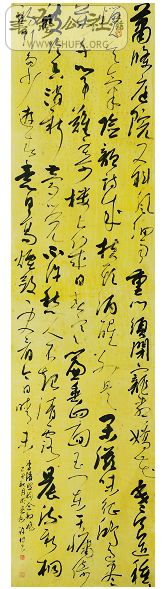 萧条庭院又斜风细雨重门须闭宠柳娇花寒食近种
种恼人天气险韵诗成扶头酒醒别是闲滋味征鸿过尽万
千心事难寄楼上几日春寒帘垂四面玉阑干慵倚
被冷香消新梦觉不许愁人不起清露晨流新桐
初引多少游春意日高烟敛更看今日晴未
李清照词念奴娇